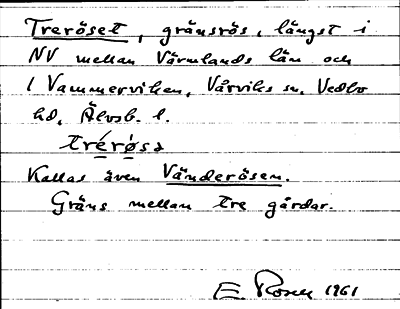 Treröset, gränsrös, längst i
NV mellan Värmlands län och
l Vammerviken, Vårviks sn, Vedbo
hd, Älvsb. l.
trérǿsə
Kallas även Vänderösen.
Gräns mellan tre gårdar.
E. Rosen 1961